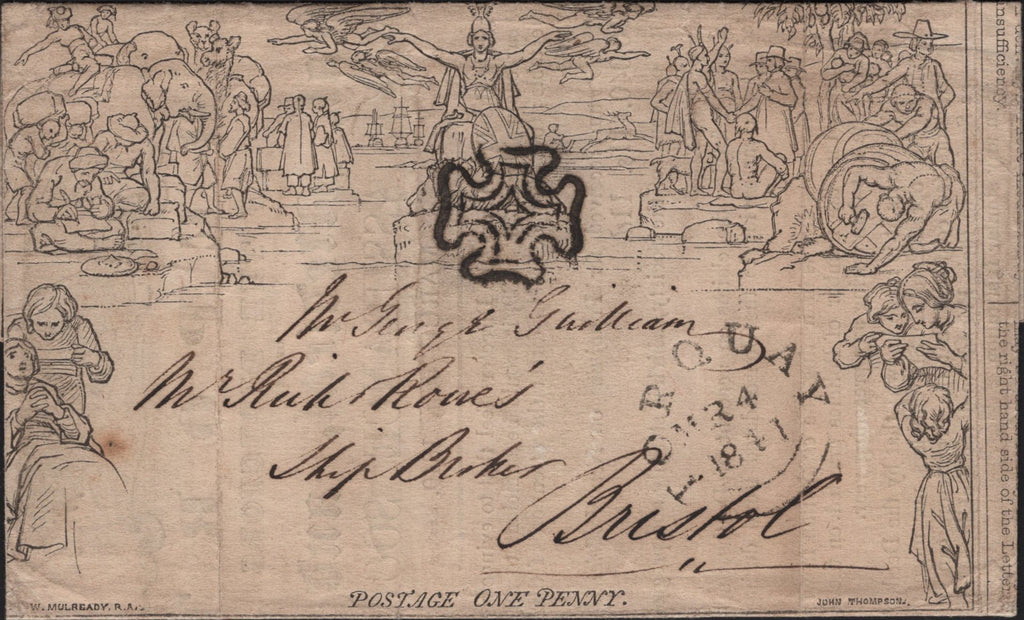 Mr George Guilliam
Mr Richd Rowe's
Ship Broker
Bristol
TORQUAY
MR 24
1841
POSTAGE ONE PENNY.
W. MULREADY, R.A.
JOHN THOMPSON.
insufficiency
the right hand side of the Letter